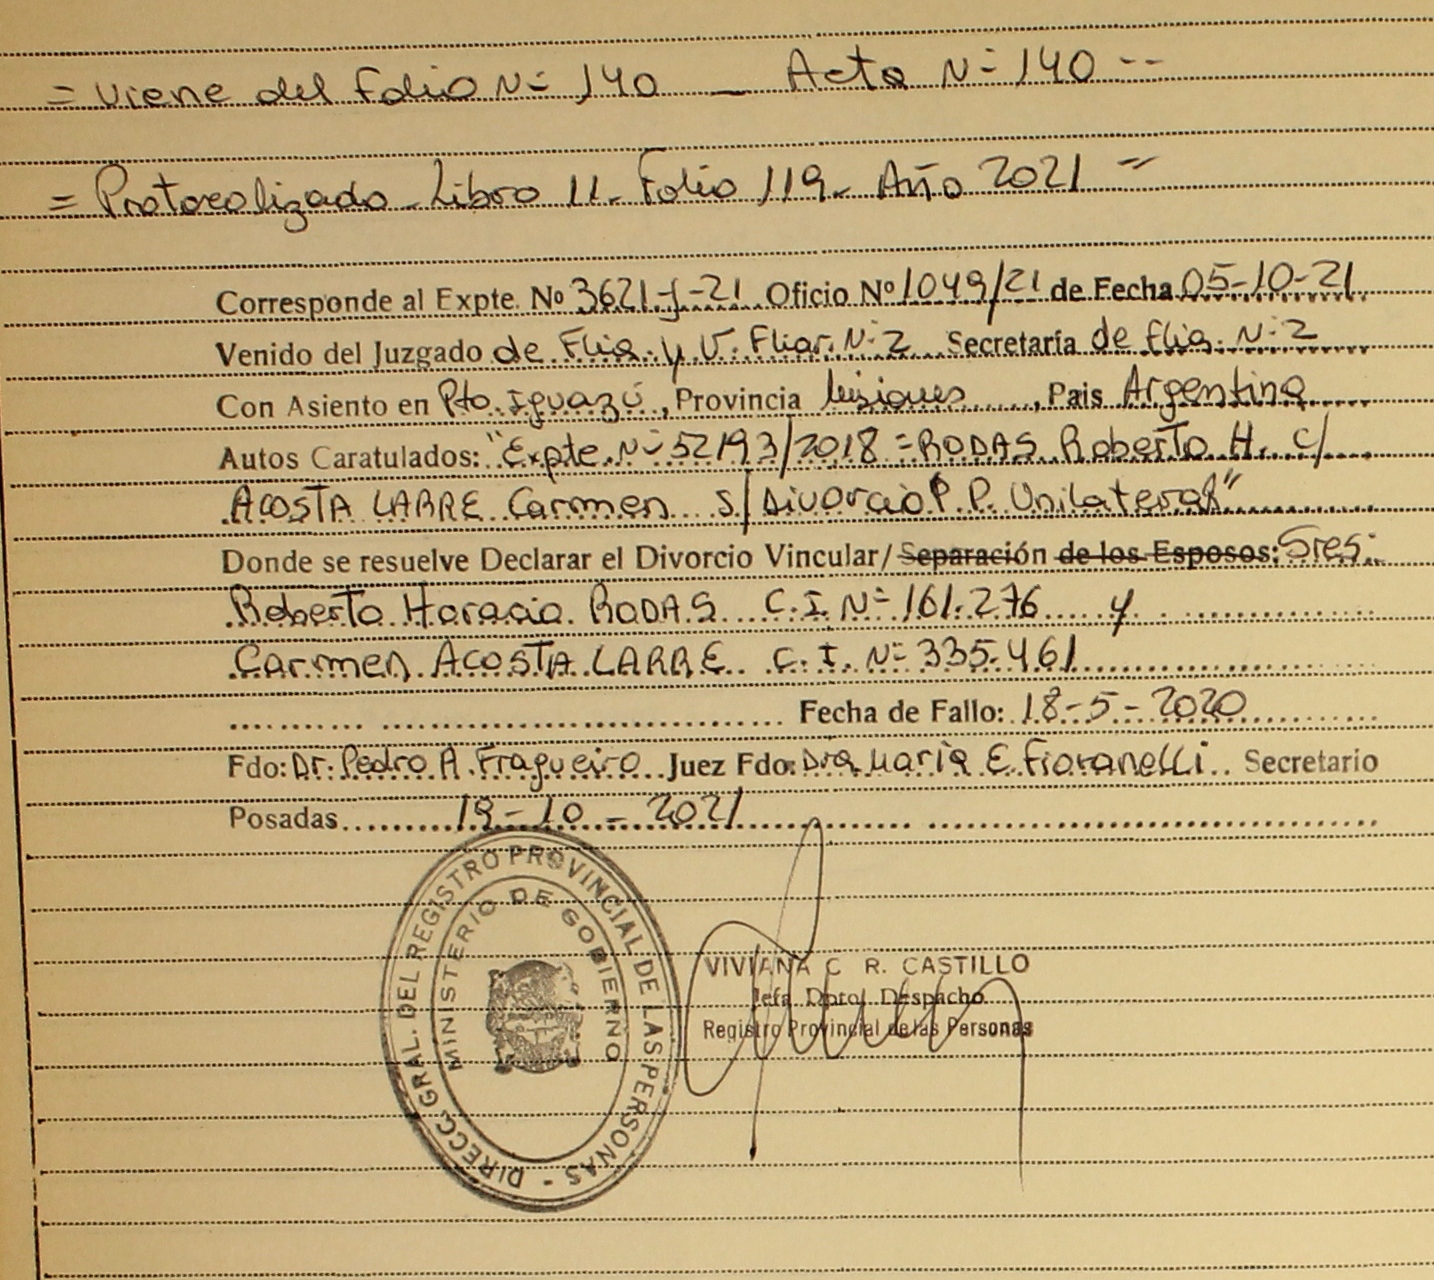 = Viene del Folio Nº 140 — Acta Nº 140 --
= Protocolizado - Libro 11 - Folio 119 - Año 2021 =
Corresponde al Expte. Nº 3621-J-21 Oficio Nº 1049/21 de Fecha 05-10-21
Venido del Juzgado de Flia. y V. Fliar. Nº 2 Secretaría de Flia. Nº 2
Con Asiento en Pto. Iguazú, Provincia Misiones, Pais Argentina
Autos Caratulados: "Expte. Nº 52193/2018 = RODAS Roberto H. C/
ACOSTA LARRE Carmen S/ Divorcio P.P. Unilateral"
Donde se resuelve Declarar el Divorcio Vincular/Separación de los Esposos: Sres:
Roberto Horacio RODAS C.I. Nº 161.276 y
Carmen ACOSTA LARRE C.I. Nº 335.461
Fecha de Fallo: 18-5-2020
Fdo: Dr. Pedro A. Fragueiro Juez Fdo: Dra María E. Fioranelli Secretario
Posadas 19-10-2021
DIRECC. GRAL. DEL REGISTRO PROVINCIAL DE LAS PERSONAS -
MINISTERIO DE GOBIERNO
VIVIANA C R. CASTILLO
Jefa Dpto. Despacho
Registro Provincial de las Personas